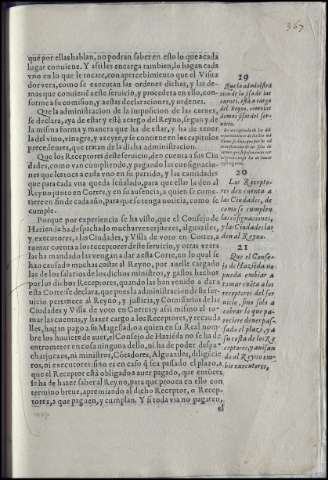 367
que por ellas hablan, no podran saber en esto lo que a cada
lugar conuiene. Y assi les encarga tambien, lo hagan cada
vno en lo que le tocare, con apercebimiento que el Visita
dor vera, como se executan las ordenes dichas, y las de-
mas que conuiene a este seruicio, y procedera en ello, con-
forme a su comision, y a estas declaraciones, y ordenes.
Que la administracion de la imposicion de las carnes,
se declara, q̃ ha de estar y està a cargo del Reyno, segun y de
la misma forma y manera que ha de estar, y ha de tener
la del vino, vinagre, y azeyte, y se contiene en los capitulos
precedentes, que tratan de la dicha administracion.
Que los Receptores deste seruicio, den cuenta a sus Ciu
dades, como van cumpliendo, y pagando las consignacio-
nes que les toca a cada vno en su partido, y las cantidades
que para cada vna queda señalado, para que ella lo den al
Reyno junto en Cortes, y en su ausencia, a quien se come-
tiere en fin de cada año, para que se tenga noticia, como se
cumple.
Porque por experiencia se ha visto, que el Consejo de
Hazienda ha despachado muchas vezes juezes, alguaziles,
y executores, a las Ciudades, y Villa de voto en Cortes, a
tomar cuenta a los receptores deste seruicio, y otras vezes
las ha mandado la vengan a dar a esta Corte, en lo qual se
han causado muchas costas al Reyno, por auerle cargado
las de los salarios de los dichos ministros, y gastos hechos
por los dichos Receptores, quando las han venido a dar a
esta Corte: se declara, que pues la administracion deste ser-
uicio pertenece al Reyno, y justicia, y Comissarios de las
Ciudades y Villa de voto en Cortes: y assi mismo el to-
mar las cuentas, y hazer cargo a los Receptores, y recauda
lles, hagan pago a su Magestad, o a quien en su Real nombre
los huuiere de auer, el Consejo de Hazienda no se ha de
entrometer en cosa ninguna dello, ni ha de poder despa-
char juezes, ni ministros, Cõtadores, Alguaziles, diligẽcie
ros, ni executores: sino es en caso q̃ sea passado el plazo, a
que el Receptor està obligado a auer pagado, que entonces
se ha de hazer saber al Reyno, para que prouea en ello con
termino breue, apremiando al dicho Receptor, o Recep-
tores, a que paguen, y cumplan. Y si toda via no pagaren,
el
19
Que la administra
cion de la sisa de las
carnes, està a cargo
del Reyno, como las
demas sisas del ser-
uicio.
20
Los Recepto-
res den cuenta a
las Ciudades, de
como se cumplen
las consignaciones,
y las Ciudades las
den al Reyno.
21
Que el Conse-
jo de Hazienda no
pueda embiar a
tomar cuẽta a los
receptores del ser
uicio, sino solo a
cobrar lo que pa-
reciere deuer pas-
sado el plazo, y a
su costa de los Re
ceptores; y auisan
do al Reyno em-
bie executores.